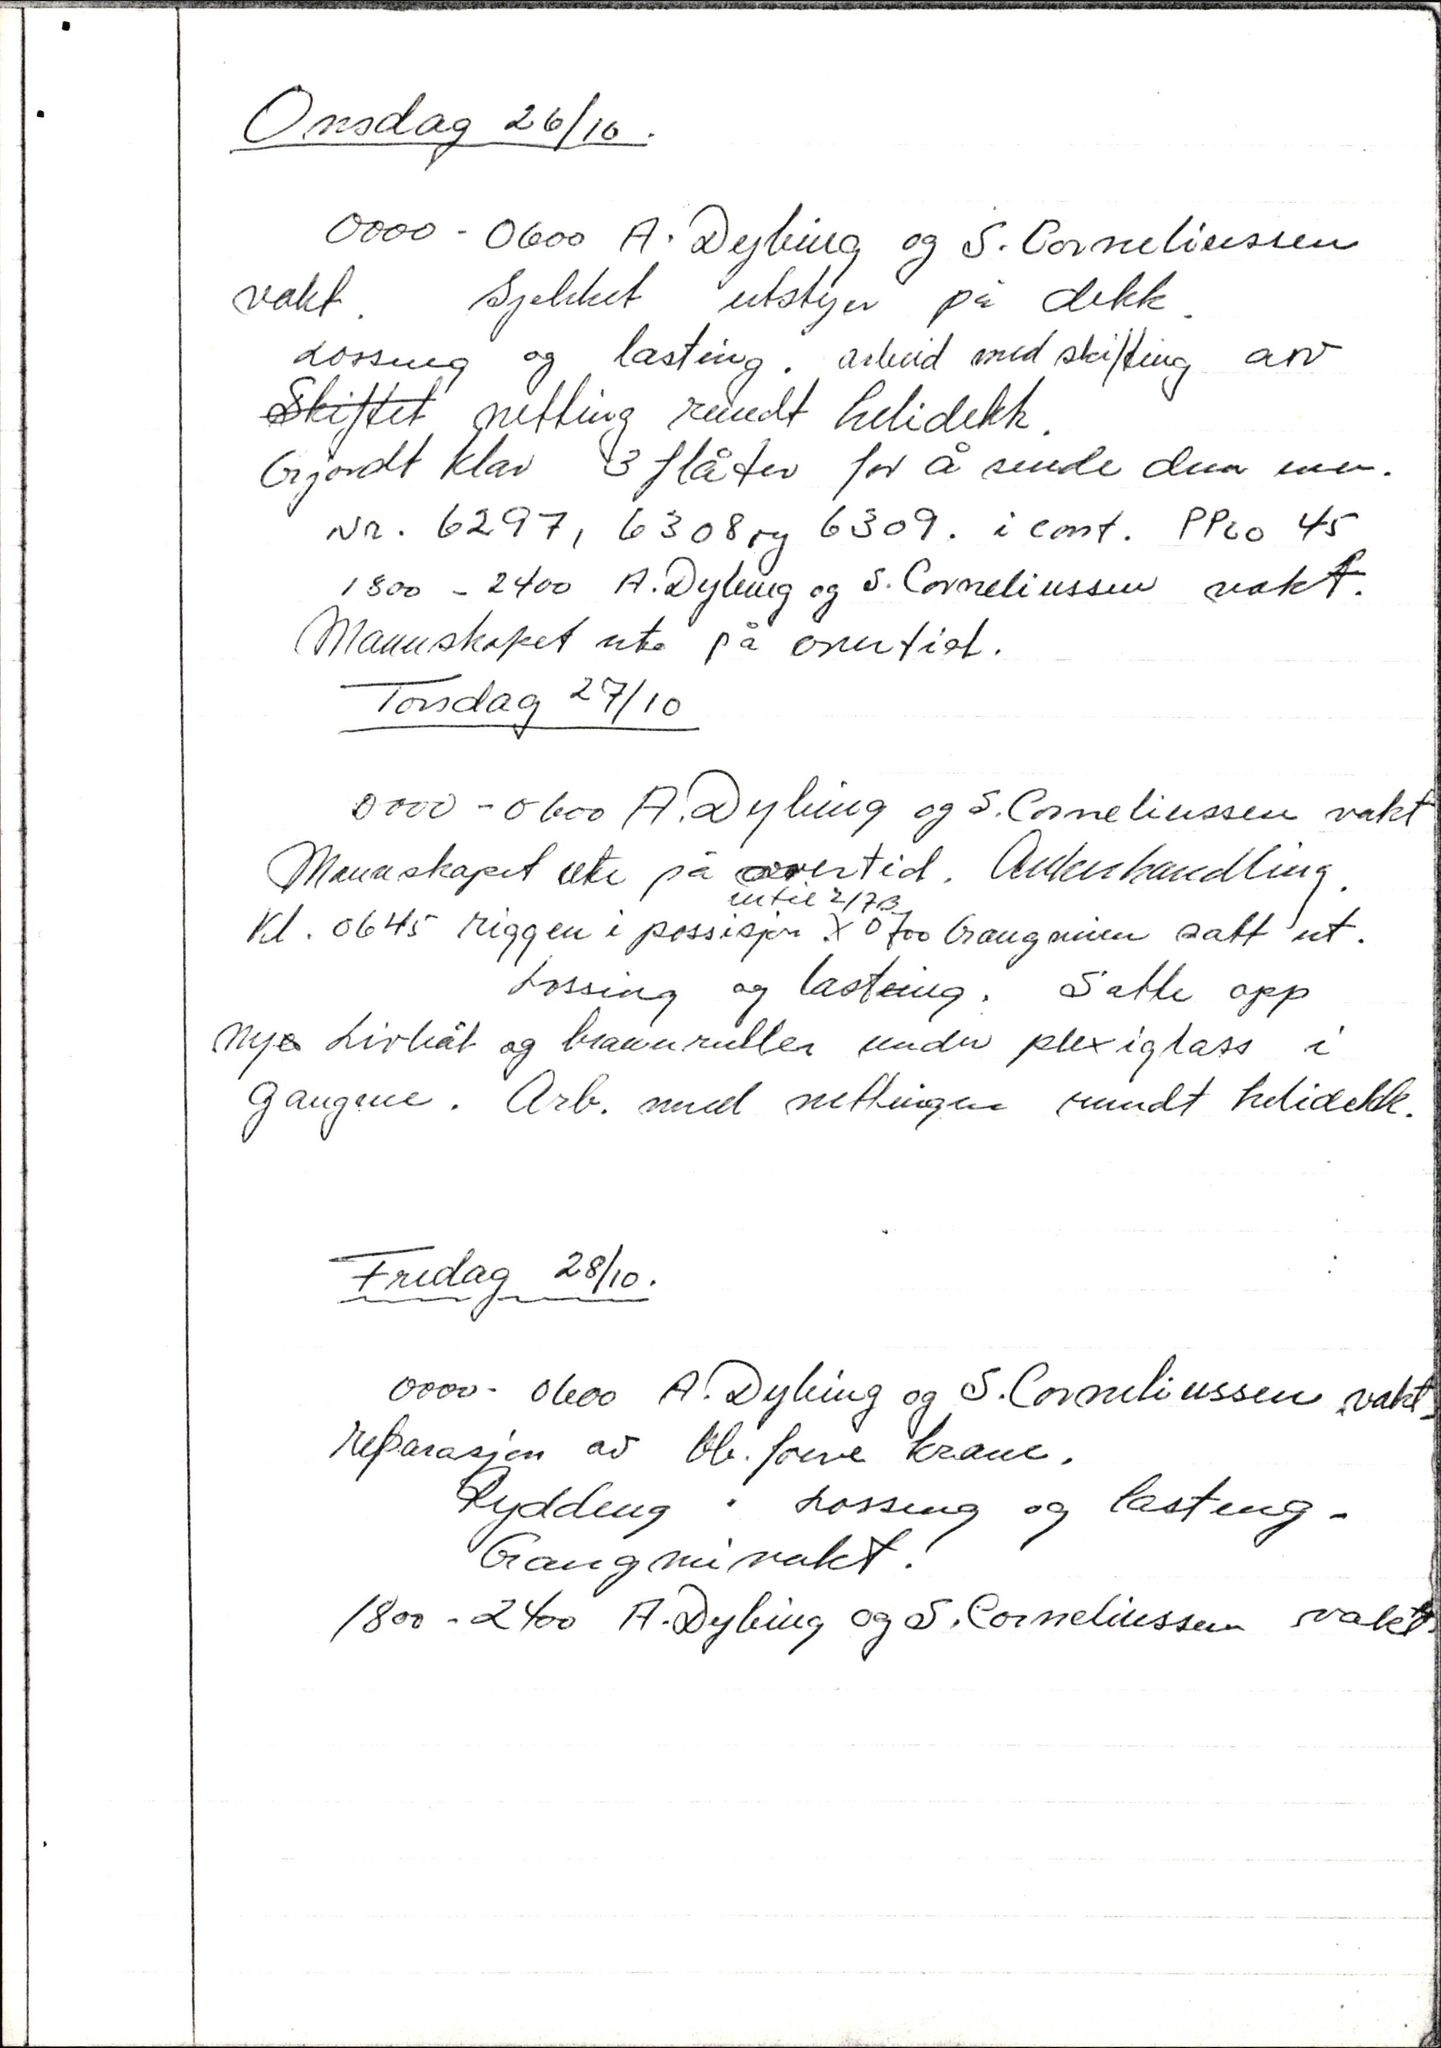 Onsdag 26/10.
0000 - 0600 A. Dybing og S. Corneliussen
vakt. Sjekket utstyr på dekk.
Lossing og lasting. arbeid med skifting av
Skiftet netting rundt helidekk.
Gjordt klar 3 flåter for å sende dem inn.
Nr. 6297, 6308, og 6309. i cont. PPCO 45
1800 - 2400 A. Dybing og S. Corneliussen vakt.
Mannskapet ute på overtid.
Torsdag 27/10
0000 - 0600 A. Dybing og S. Corneliussen vakt
Mannskapet ute på overtid. Ankerhandling.
intil 2/7B
Kl. 0645 riggen i possisjon X 0700 Gangveien satt ut.
Lossing og lasting. Satte opp
nye Livbåt og brannruller under plexiglass i
gangene. Arb. med nettingen rundt helidekk.
Fredag 28/10.
0000 - 0600 A. Dybing og S. Corneliussen vakt.
reparasjon av bb. forre krane.
Rydding. Lossing og lasting.
Gangveivakt.
1800 - 2400 A. Dybing og S. Corneliussen vakt.